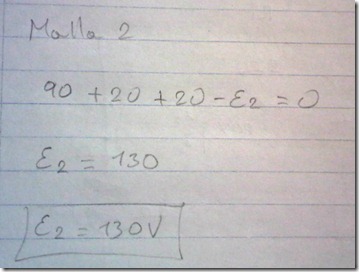 Malla 2
90 + 20 + 20 - ε2 = 0
ε2 = 130
ε2 = 130V